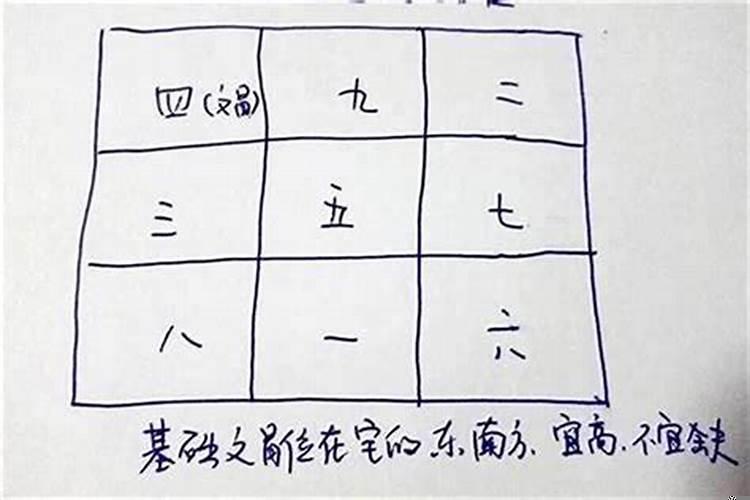 四(文昌) 九 二
三 五 七
八 一 六
基础文昌位在宅的东南方、宜高、不宜缺